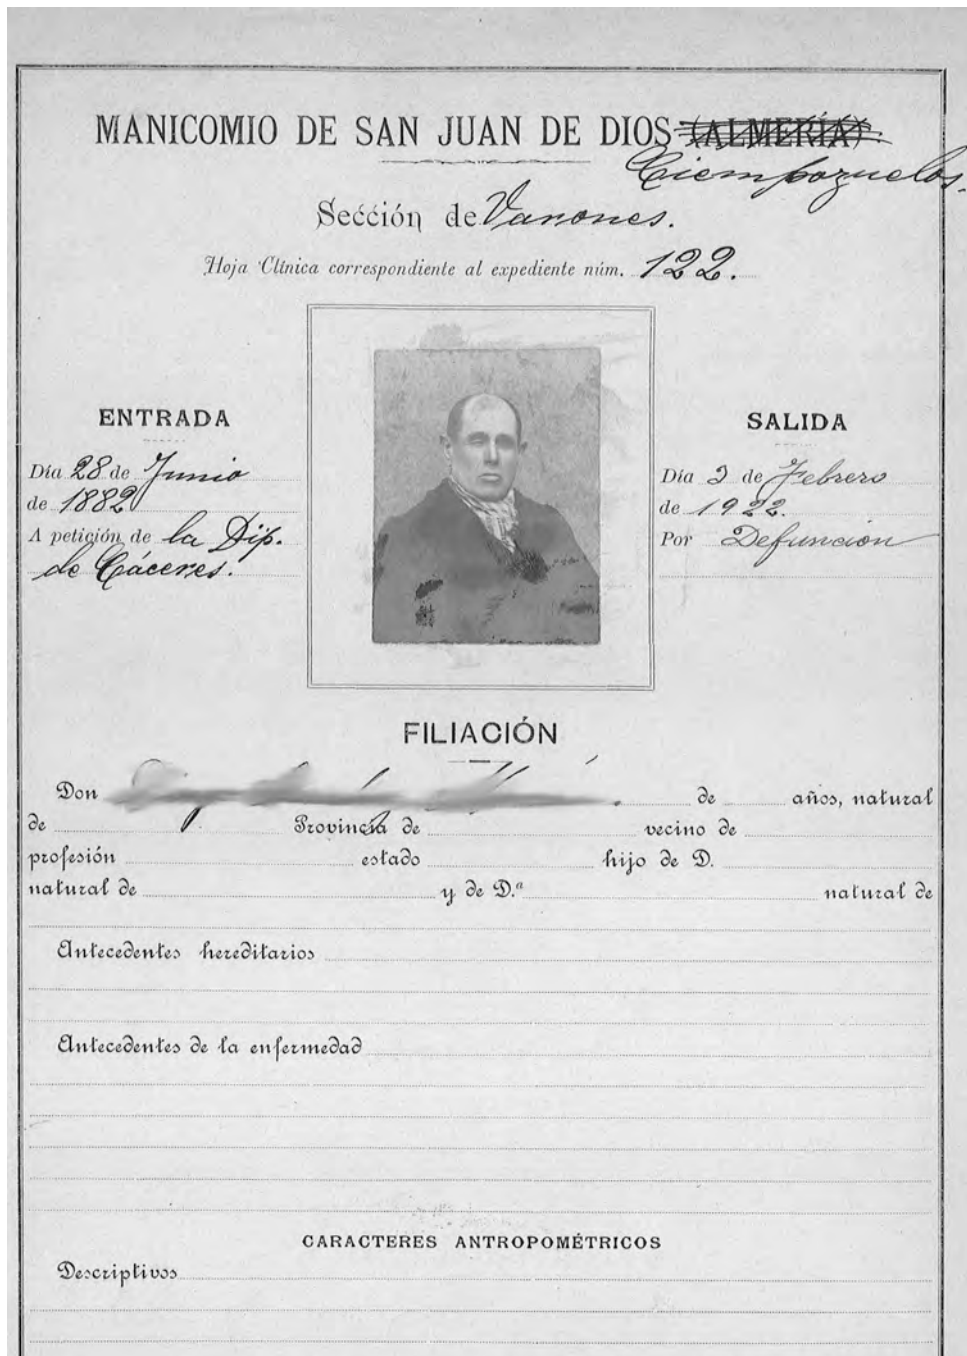 MANICOMIO DE SAN JUAN DE DIOS (ALMERÍA).
Ciempozuelos.
Sección de Varones.
Hoja Clínica correspondiente al expediente núm. 122.
ENTRADA
Día 28 de Junio
de 1882
A petición de la Dip.
de Cáceres.
SALIDA
Día 2 de Febrero
de 1922.
Por Defunción
FILIACIÓN
Don de años, natural
de Provincia de vecino de
profesión estado hijo de D.
natural de y de D.ª natural de
Antecedentes hereditarios
Antecedentes de la enfermedad
CARACTERES ANTROPOMÉTRICOS
Descriptivos